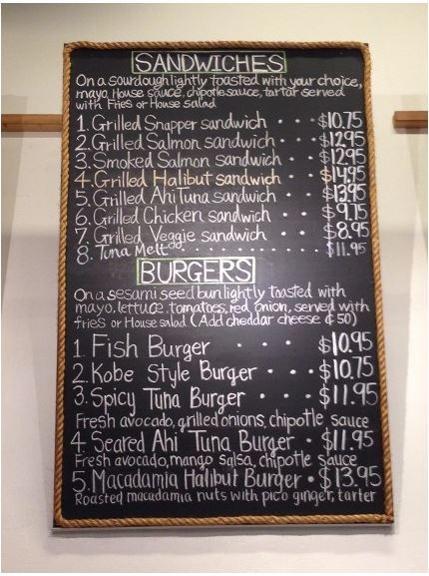 SANDWICHES
On a sourdough lightly toasted with your choice,
mayo, House sauce, chipotle sauce, tartar served
with Fries or House salad
1. Grilled Snapper sandwich · · · $10.75
2. Grilled Salmon sandwich · · · $12.95
3. Smoked Salmon sandwich · · $12.95
4. Grilled Halibut sandwich · · $14.95
5. Grilled Ahi Tuna sandwich $13.95
6. Grilled Chicken sandwich · · $9.75
7. Grilled Veggie sandwich · · $8.95
8. Tuna Melt · · · · · · · · · · · $11.95
BURGERS
On a sesami seed bun lightly toasted with
mayo, lettuce, tomatoes, red onion, served with
fries or House salad (Add cheddar cheese ¢ 50)
1. Fish Burger · · · $10.95
2. Kobe Style Burger · · · $10.75
3. Spicy Tuna Burger · · · $11.95
Fresh avocado, grilled onions, chipotle sauce
4. Seared Ahi Tuna Burger · $11.95
Fresh avocado, mango salsa, chipotle sauce
5. Macadamia Halibut Burger · $13.95
Roasted macadamia nuts with pico ginger, tarter